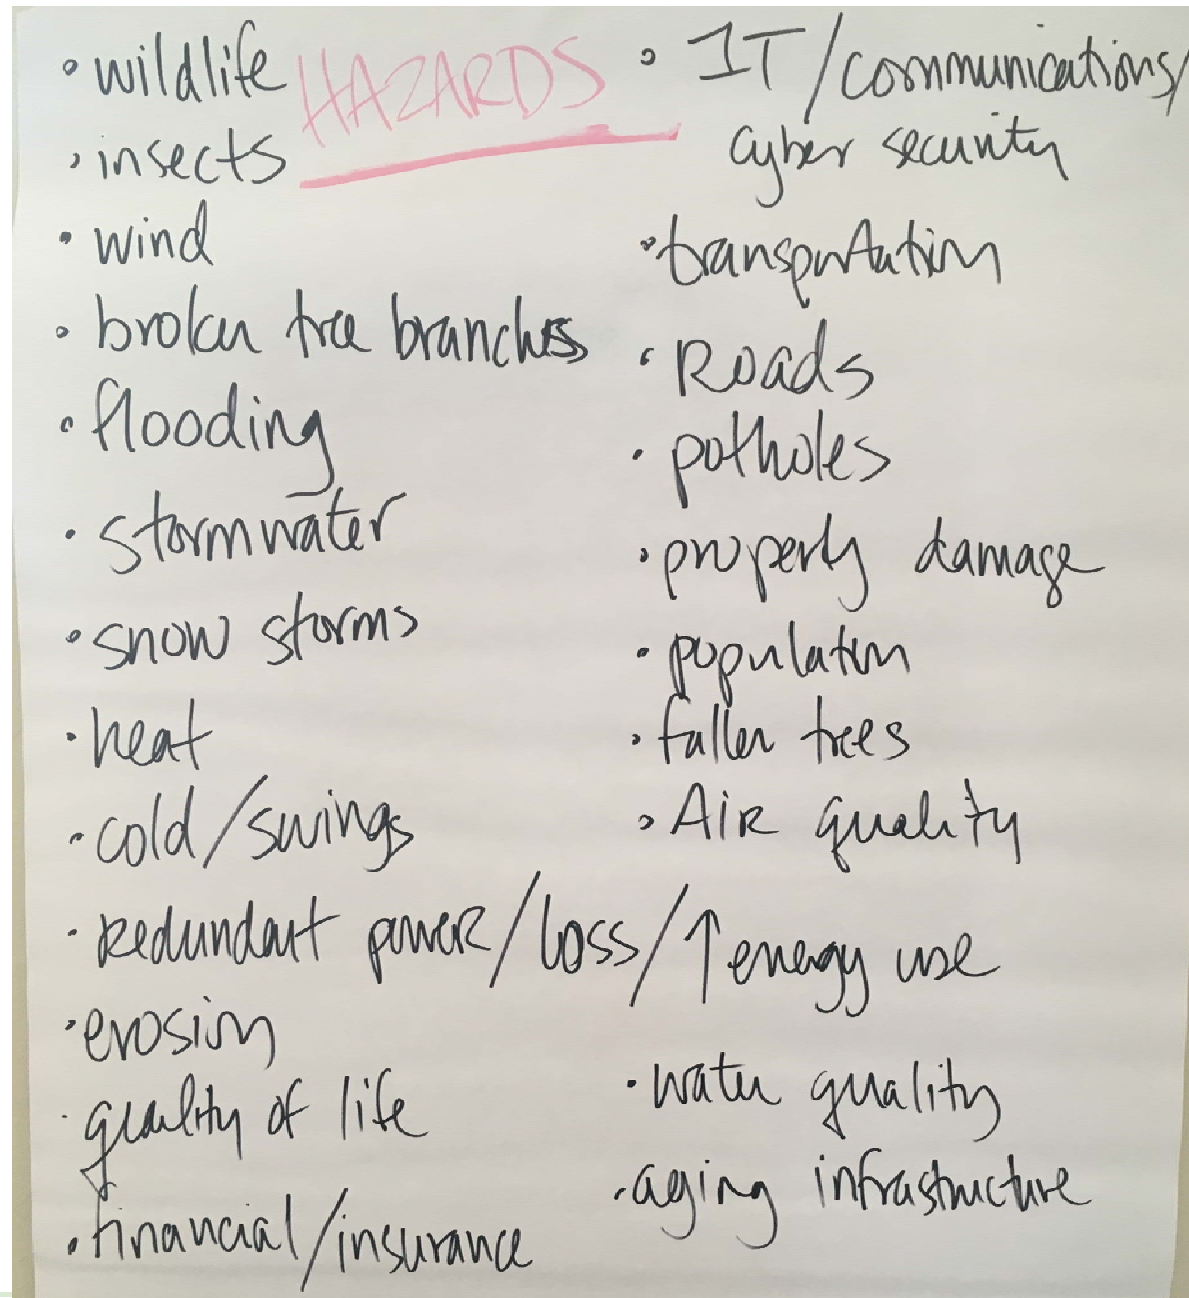 HAZARDS
• wildlife
• insects
• wind
• broken tree branches
• flooding
• stormwater
• snow storms
• heat
• cold/swings
• redundant power/loss/↑energy use
• erosion
• quality of life
• financial/insurance
• IT/communications/
cyber security
• transportation
• Roads
• potholes
• property damage
• population
• fallen trees
• Air quality
• water quality
• aging infrastructure